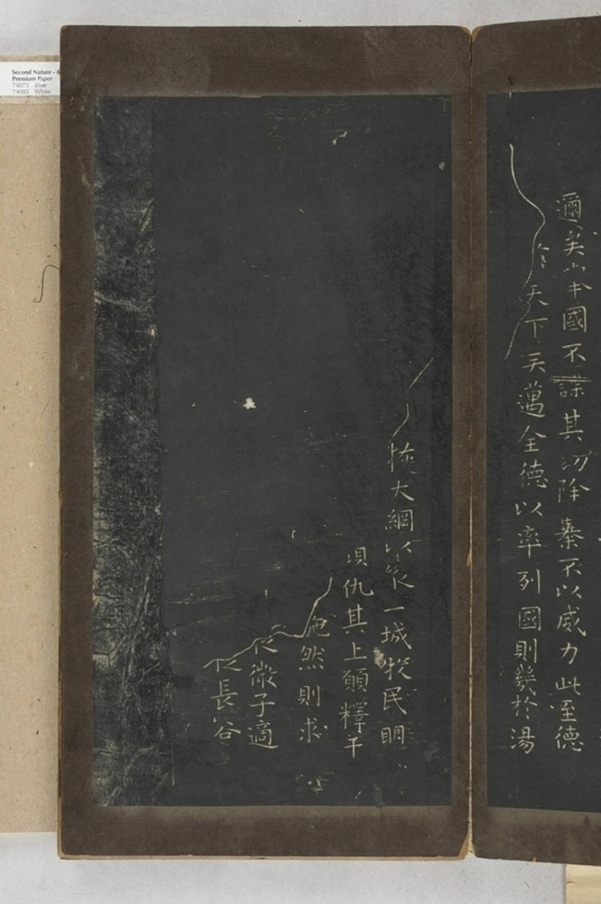 Second Nature
Premium Paper
74075 Blue
74080 White
邇矣國不謀其功除暴不以威力此至德
於天下矣邁全德以率列國則幾於湯
恢大綱以城牧民明
仇其上願釋干
施然則求
微子適
長谷